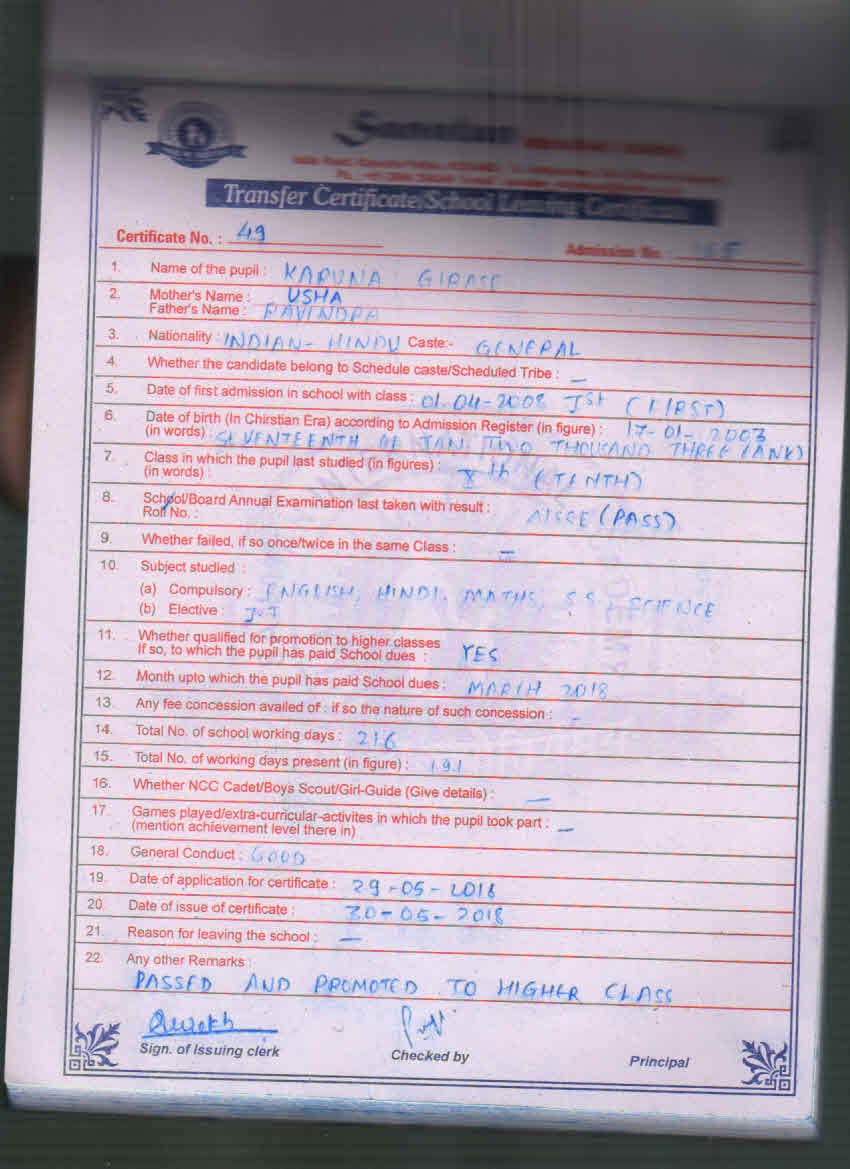 Transfer Certificate/School Leaving Certificate
Certificate No. : 49
Admission No. :
1. Name of the pupil : KARUNA GIRASE
2. Mother's Name : USHA
Father's Name : RAVINDRA
3. Nationality : INDIAN - HINDU Caste:- GENERAL
4. Whether the candidate belong to Schedule caste/Scheduled Tribe : —
5. Date of first admission in school with class : 01.04-2008 Ist (FIRST)
6. Date of birth (In Chirstian Era) according to Admission Register (in figure) : 17-01-2003
(in words) : SEVENTEENTH OF JAN TWO THOUSAND THREE
7. Class in which the pupil last studied (in figures) : Xth (TENTH)
(in words) :
8. School/Board Annual Examination last taken with result : AISCE (PASS)
Roll No. :
9. Whether failed, if so once/twice in the same Class : —
10. Subject studied :
(a) Compulsory : ENGLISH, HINDI, MATHS, S.S., SCIENCE
(b) Elective :
11. Whether qualified for promotion to higher classes
If so, to which the pupil has paid School dues : YES
12. Month upto which the pupil has paid School dues : MARCH 2018
13. Any fee concession availed of : if so the nature of such concession : -
14. Total No. of school working days : 216
15. Total No. of working days present (in figure) : 191
16. Whether NCC Cadet/Boys Scout/Girl-Guide (Give details) : —
17. Games played/extra-curricular-activites in which the pupil took part : —
(mention achievement level there in)
18. General Conduct : GOOD
19. Date of application for certificate : 29-05-2018
20. Date of issue of certificate : 30-05-2018
21. Reason for leaving the school : —
22. Any other Remarks :
PASSED AND PROMOTED TO HIGHER CLASS
Sign. of Issuing clerk Checked by Principal